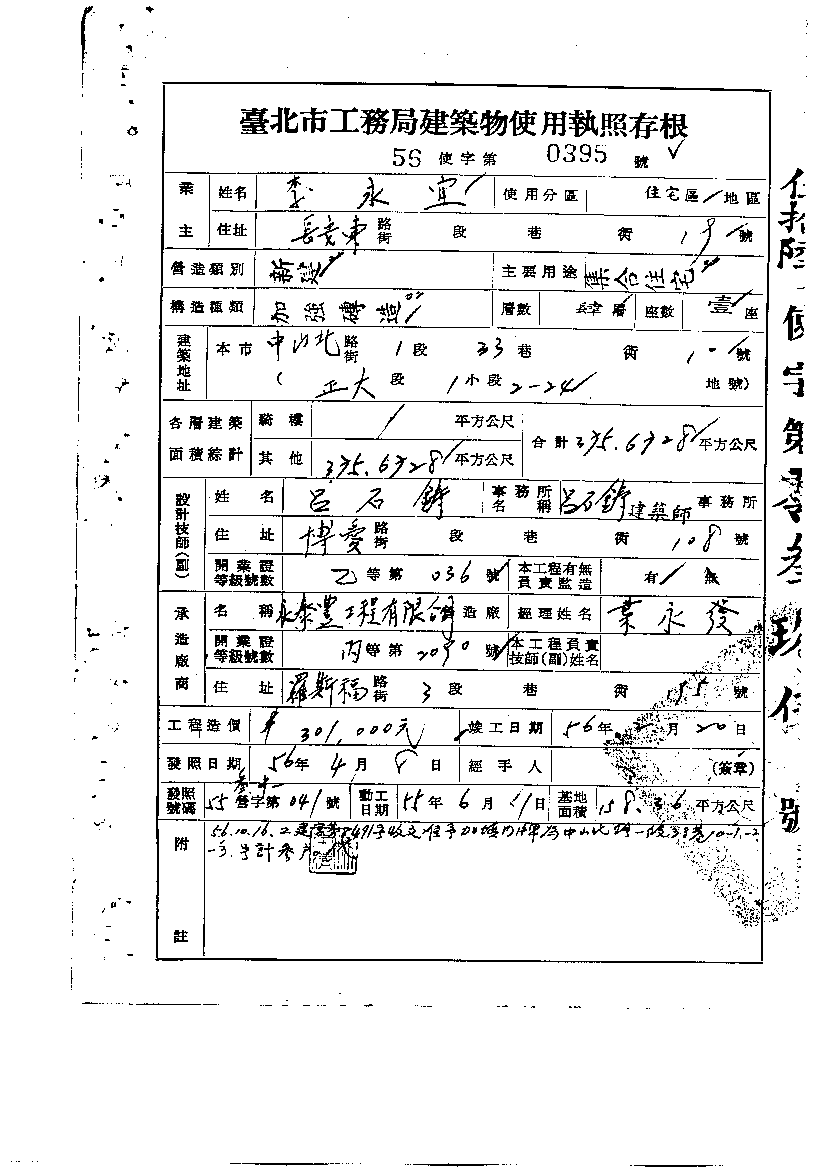 臺北市工務局建築物使用執照存根
56 使字第 0395 號
業主 姓名 李永宜 使用分區 住宅區 地區
住址 長安東 路街 段 巷 街 19 號
營造類別 新建 主要用途 集合住宅
構造種類 加強磚造 層數 肆層 座數 壹座
建築地址 本市 中山北 路街 1段 33巷 街 10-1號
( 正大段 1小段 2-24 地號)
各層建築面積綜計 騎樓 / 平方公尺 合計 平方公尺
其他 平方公尺
設計技師(副) 姓名 呂石鑄 事務所名稱 呂石鑄建築師 事務所
住址 博愛 路街 段 巷 街 108 號
開業證等級號數 乙等第 036 號 本工程有無負責監造 有 無
承造廠商 名稱 永泰豐工程有限公司 營造廠 經理姓名 葉永發
開業證等級號數 丙等第 號 本工程負責技師(副)姓名
住址 羅斯福 路街 3段 巷 街 155 號
工程造價 301,000元 竣工日期 56年 月 20日
發照日期 56年 4月 8日 經手人 (簽章)
發照號碼 55 營字第 041 號 動工日期 55年 6月 11日 基地面積 158.36 平方公尺
附註 56.10.16.
伍拾陸使字第零叁玖伍號